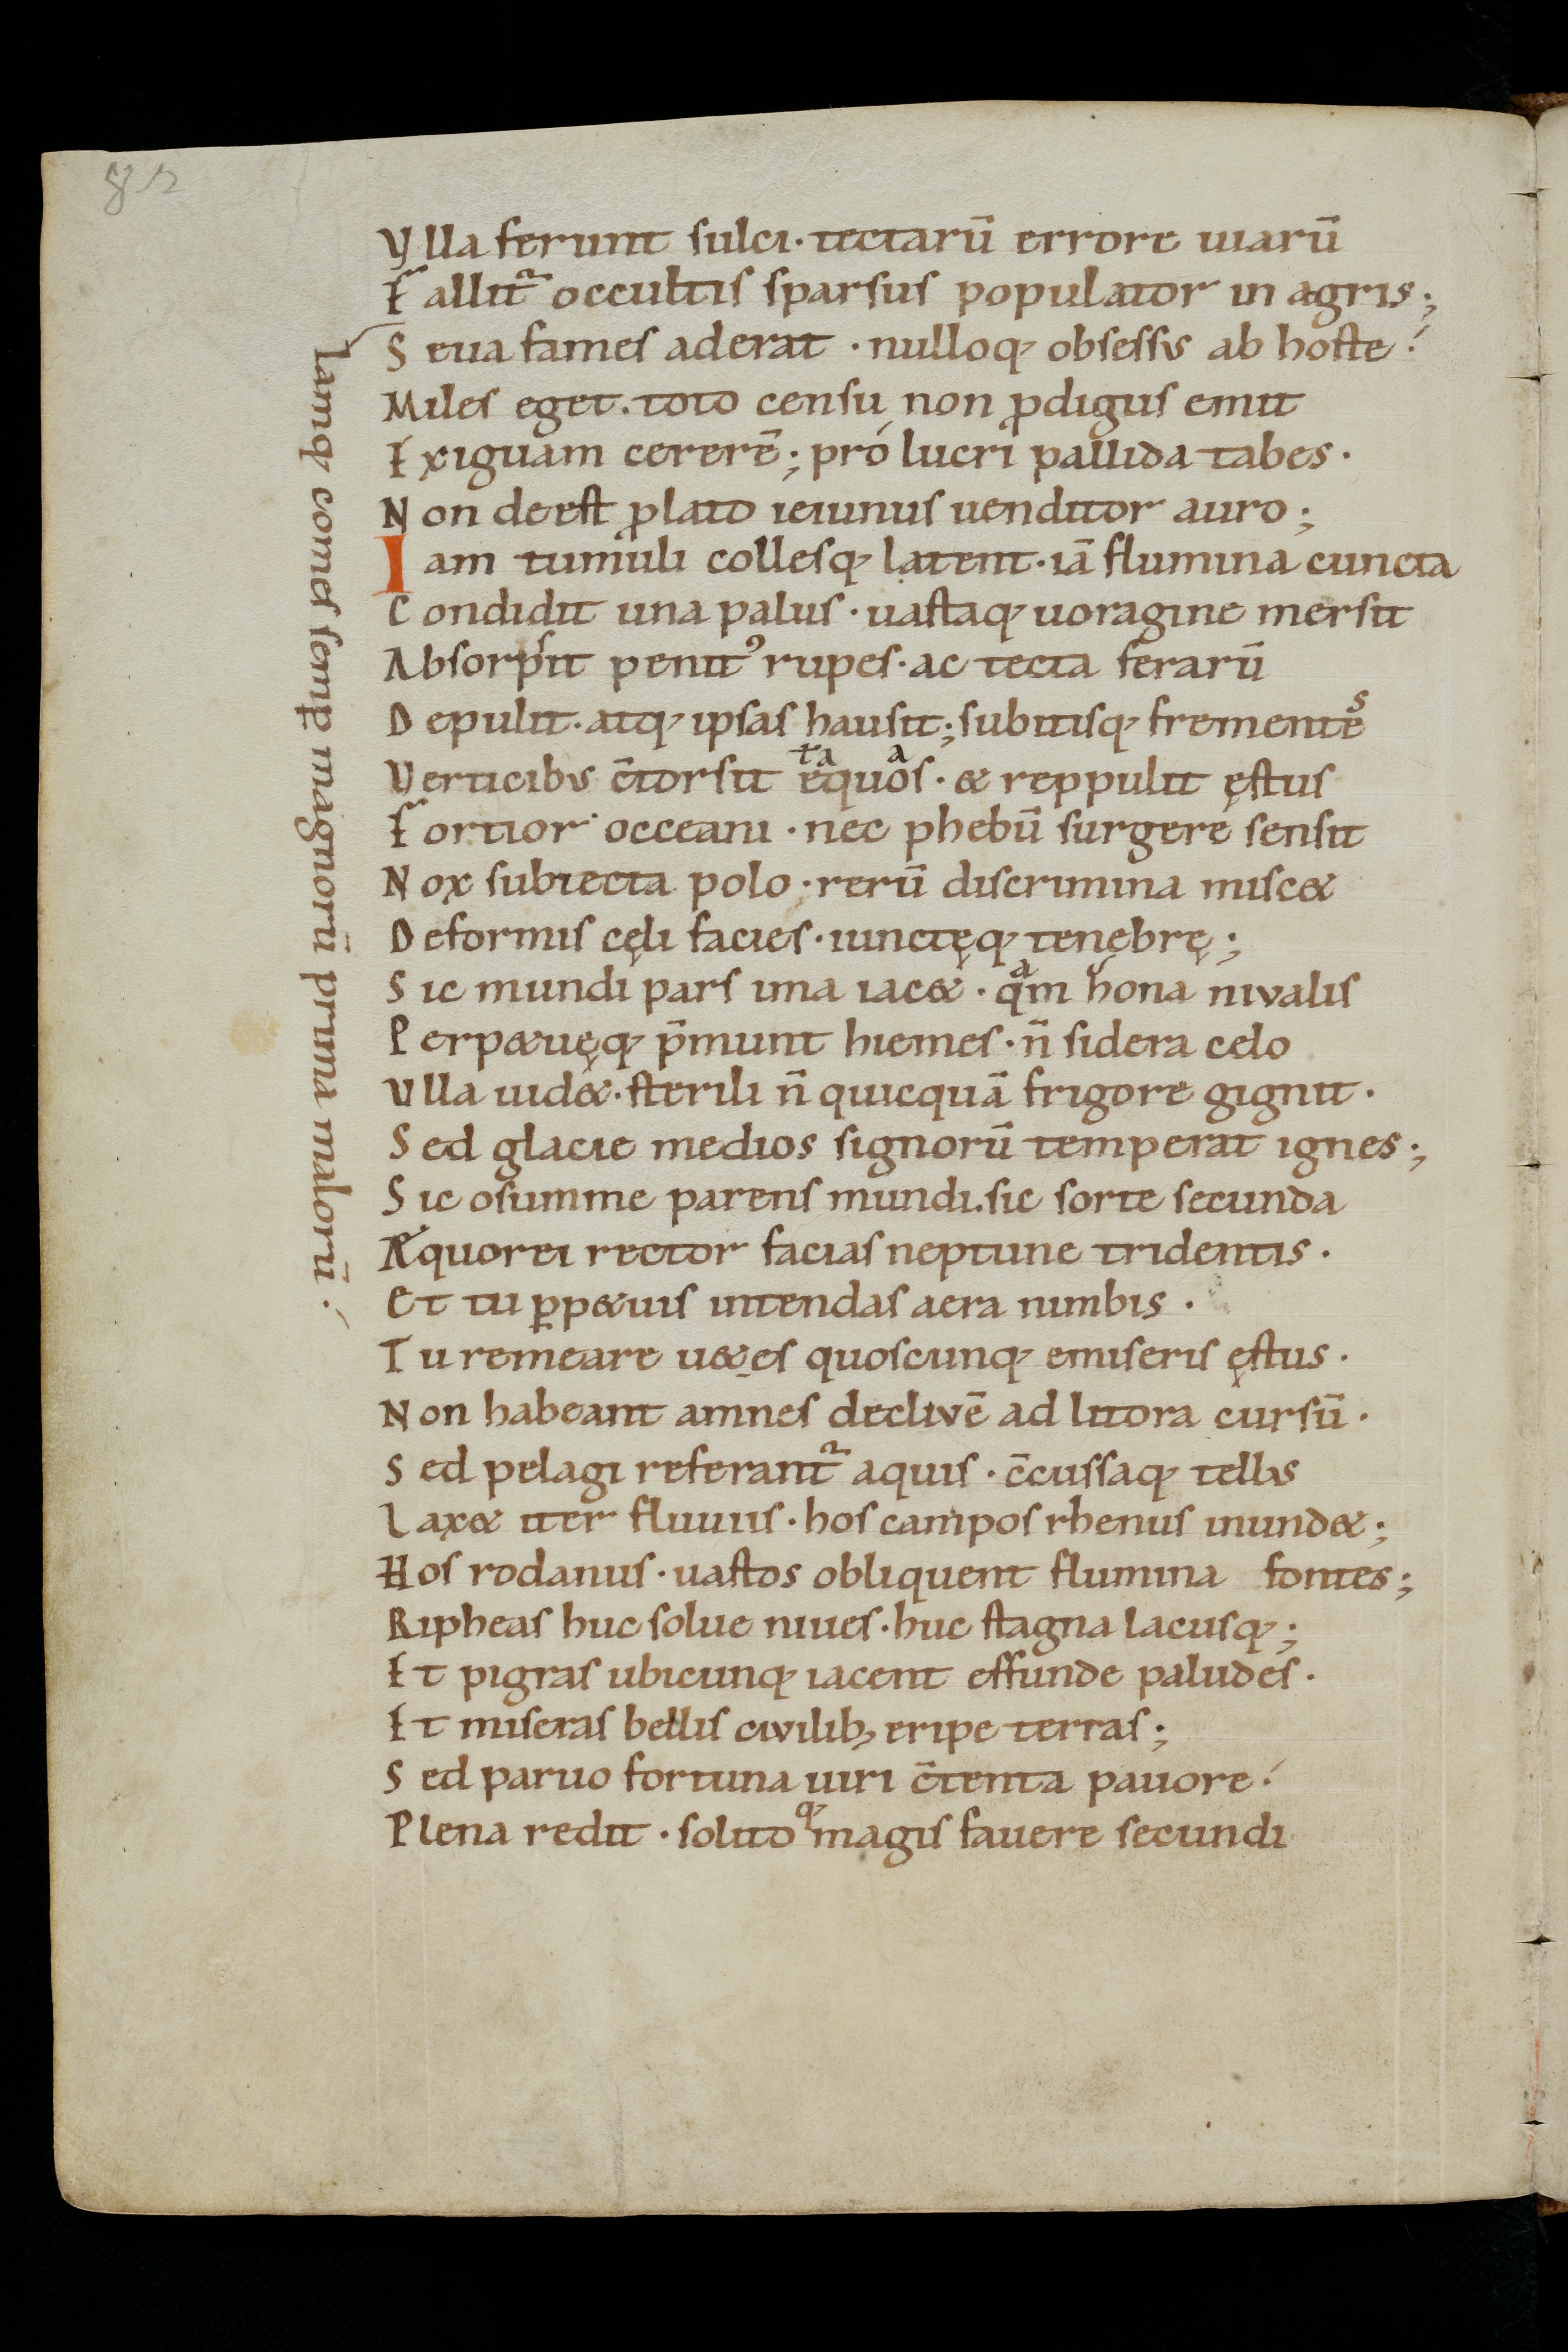 82
Vlla ferunt sulci · tectarū errore uiarū
Fallit᷑ occultis sparsus populator in agris ;
Iamq; comes semp̱ magnorū prima malorū ·
Seua fames aderat · nulloq; obsessus ab hoste ·
Miles eget · toto censu non p̄digus emit
Exiguam cererē ; pró lucri pallida tabes ·
Non deest p̄lato ieiunus uenditor auro ;
Iam tumuli collesq; latent · iā flumina cuncta
Condidit una palus · uastaq; uoragine mersit
Absorpsit penitꝰ rupes · ac tecta ferarū
Depulit · atq; ipsas hausit ; subitisq; frementes
Verticibus c̄torsit equos ta a · & reppulit ęstus
Fortior occeani · nec phebū surgere sensit
Nox subiecta polo · rerū discrimina misc&
Deformis cęli facies · iunctęq; tenebrę ;
Sic mundi pars ima iac& · qam hona nivalis
Perp&uęq; p̄munt hiemes · n̄ sidera celo
Vlla uid& · sterili n̄ quicquā frigore gignit ·
Sed glacie medios signorū temperat ignes ;
Sic osumme parens mundi · sic sorte secunda
Aequorei rector facias neptune tridentis ·
Et tu ꝑp&uis intendas aera nimbis ·
Tu remeare u&es quoscunq; emiseris ęstus ·
Non habeant amnes declivē ad litora cursū ·
Sed pelagi referant᷑ aquis · c̄cussaq; tellus
Lax& iter fluuiis · hos campos rhenus inund& ;
Hos rodanus · uastos obliquent flumina fontes ;
Ripheas huc solue niues · huc stagna lacusq; ;
Et pigras ubicunq; iacent effunde paludes ·
Et miseras bellis civilib; eripe terras ;
Sed paruo fortuna uiri c̄tenta pauore ·
Plena redit · solitoq; magis fauere secundi